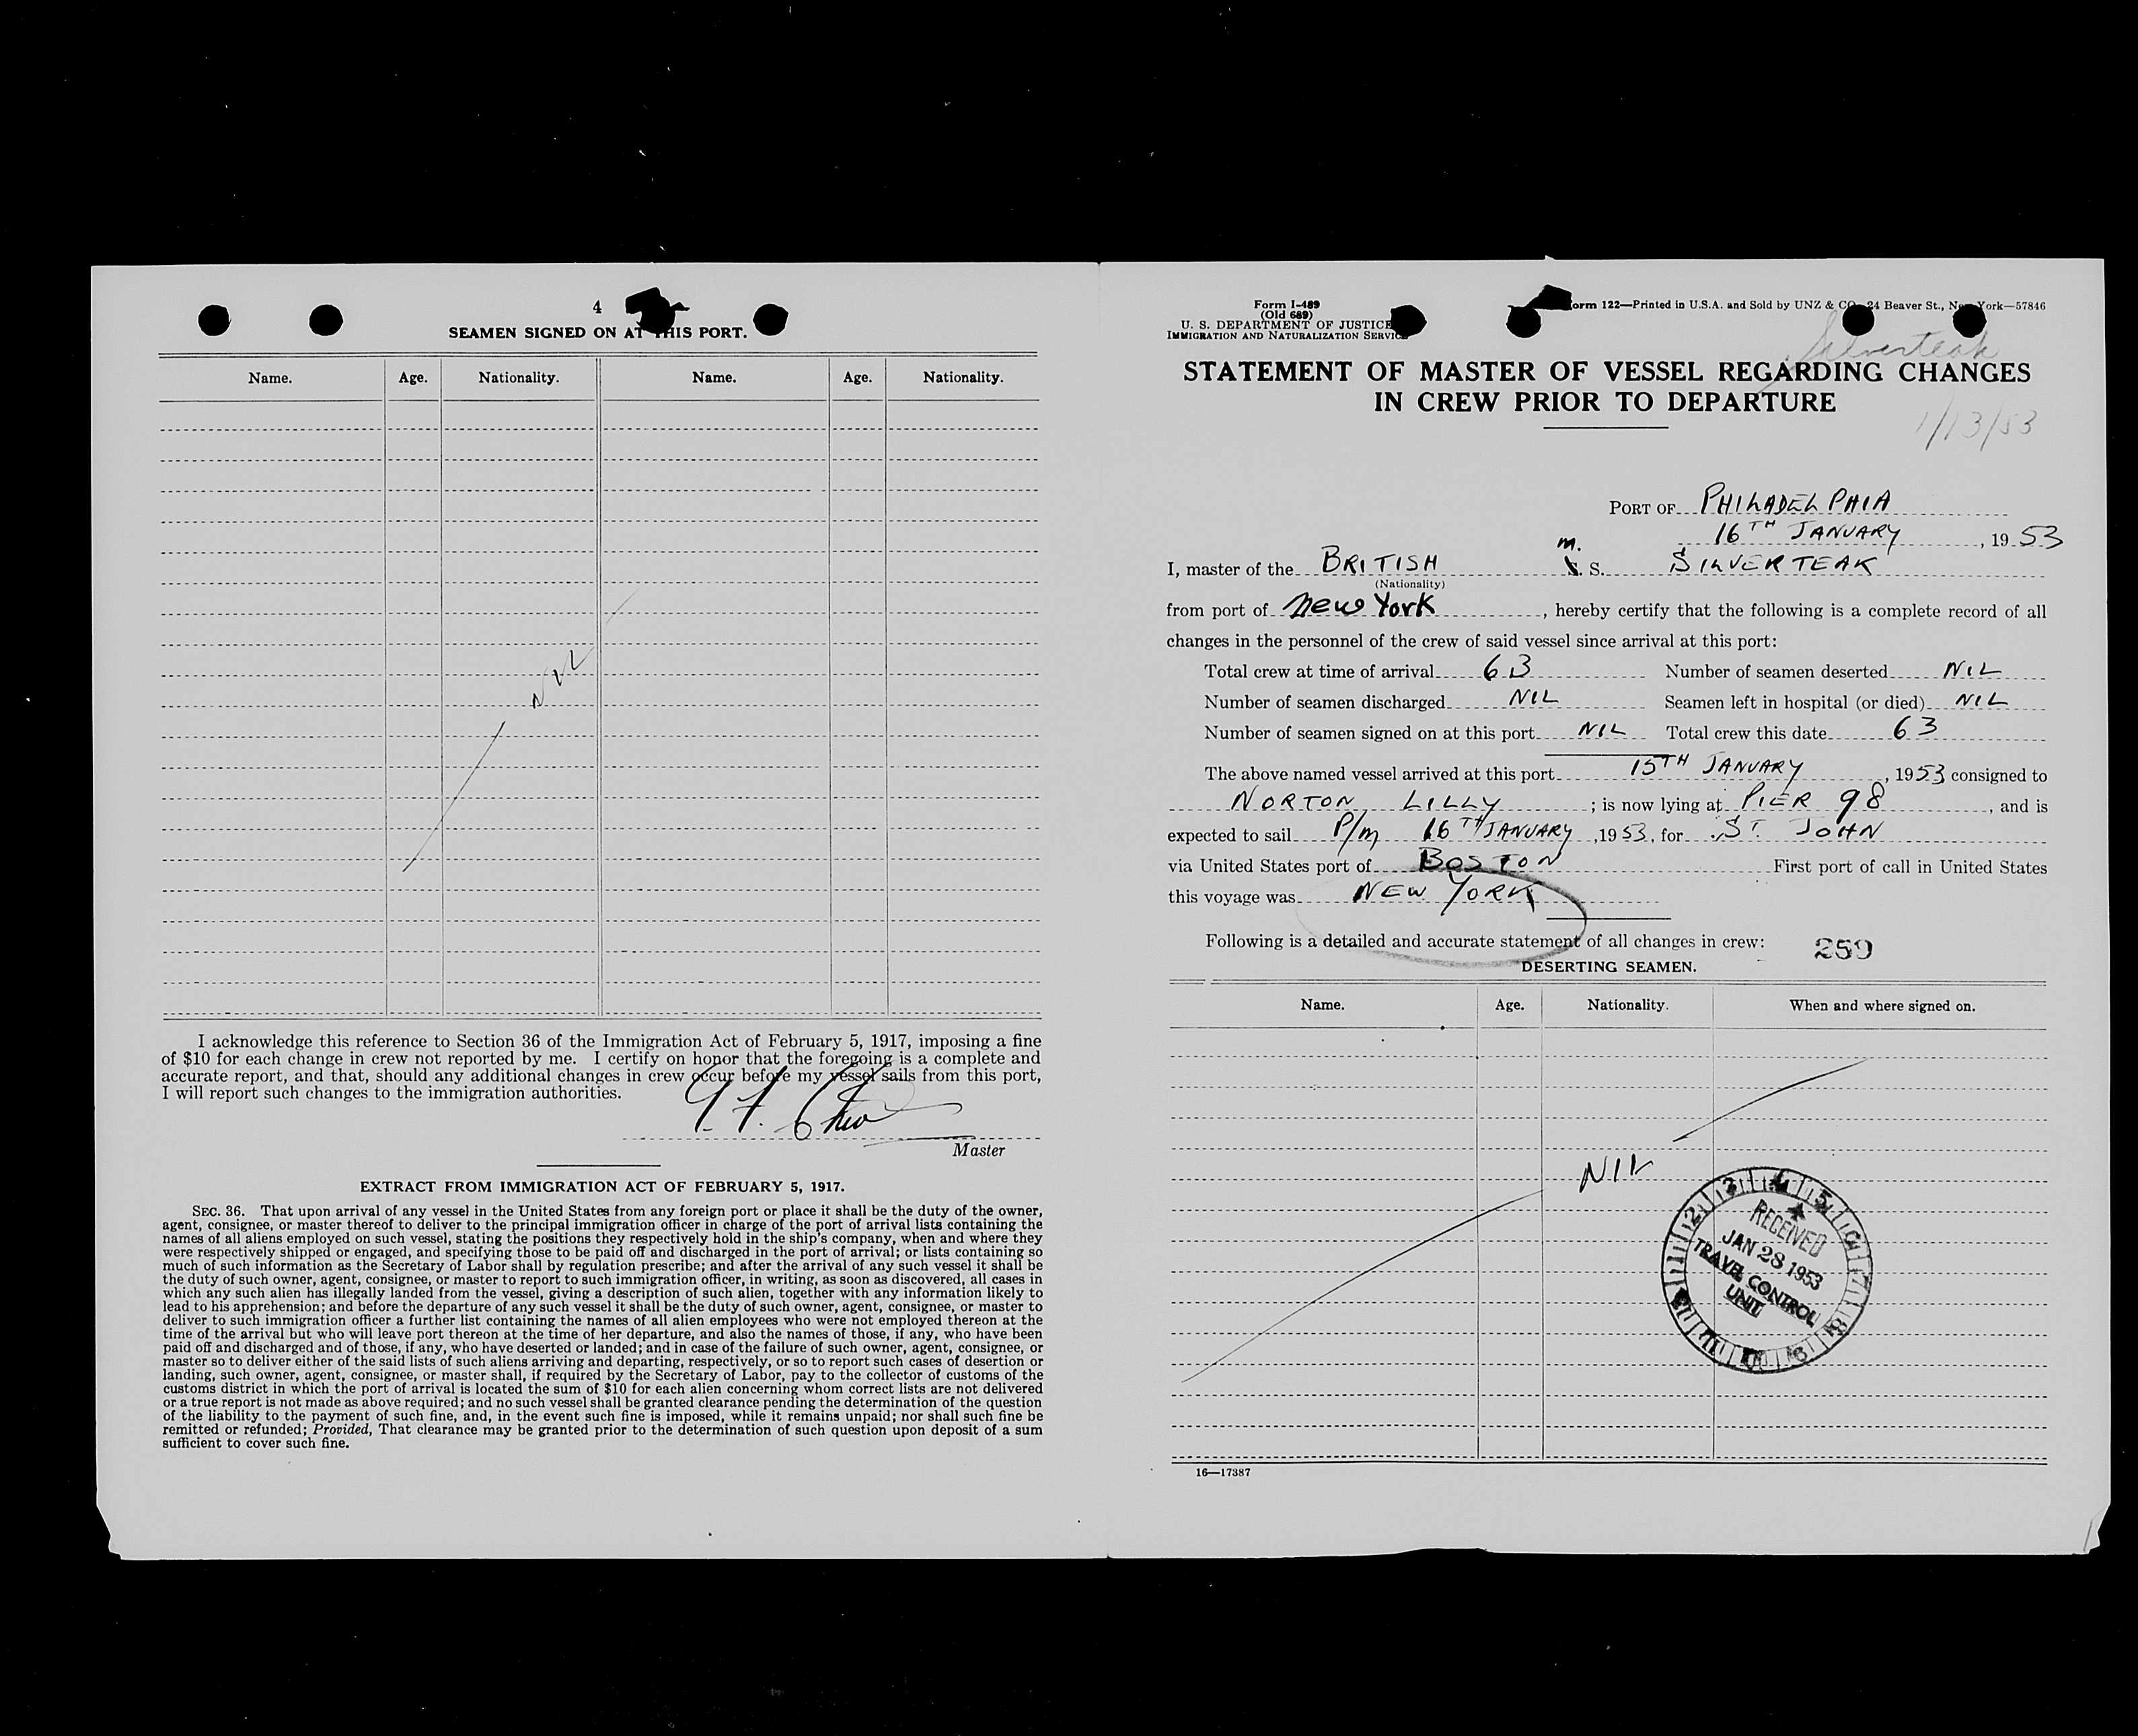 4
SEAMEN SIGNED ON AT THIS PORT.
Name. Age. Nationality. Name. Age. Nationality.
NIL
I acknowledge this reference to Section 36 of the Immigration Act of February 5, 1917, imposing a fine
of $10 for each change in crew not reported by me. I certify on honor that the foregoing is a complete and
accurate report, and that, should any additional changes in crew occur before my vessel sails from this port,
I will report such changes to the immigration authorities.
Master
EXTRACT FROM IMMIGRATION ACT OF FEBRUARY 5, 1917.
SEC. 36. That upon arrival of any vessel in the United States from any foreign port or place it shall be the duty of the owner,
agent, consignee, or master thereof to deliver to the principal immigration officer in charge of the port of arrival lists containing the
names of all aliens employed on such vessel, stating the positions they respectively hold in the ship's company, when and where they
were respectively shipped or engaged, and specifying those to be paid off and discharged in the port of arrival; or lists containing so
much of such information as the Secretary of Labor shall by regulation prescribe; and after the arrival of any such vessel it shall be
the duty of such owner, agent, consignee, or master to report to such immigration officer, in writing, as soon as discovered, all cases in
which any such alien has illegally landed from the vessel, giving a description of such alien, together with any information likely to
lead to his apprehension; and before the departure of any such vessel it shall be the duty of such owner, agent, consignee, or master to
deliver to such immigration officer a further list containing the names of all alien employees who were not employed thereon at the
time of the arrival but who will leave port thereon at the time of her departure, and also the names of those, if any, who have been
paid off and discharged and of those, if any, who have deserted or landed; and in case of the failure of such owner, agent, consignee, or
master so to deliver either of the said lists of such aliens arriving and departing, respectively, or so to report such cases of desertion or
landing, such owner, agent, consignee, or master shall, if required by the Secretary of Labor, pay to the collector of customs of the
customs district in which the port of arrival is located the sum of $10 for each alien concerning whom correct lists are not delivered
or a true report is not made as above required; and no such vessel shall be granted clearance pending the determination of the question
of the liability to the payment of such fine, and, in the event such fine is imposed, while it remains unpaid; nor shall such fine be
remitted or refunded; Provided, That clearance may be granted prior to the determination of such question upon deposit of a sum
sufficient to cover such fine.
Form I-489
(Old 689)
U. S. DEPARTMENT OF JUSTICE
IMMIGRATION AND NATURALIZATION SERVICE
Form 122—Printed in U.S.A. and Sold by UNZ & CO. 24 Beaver St., New York—57846
Silverteak
STATEMENT OF MASTER OF VESSEL REGARDING CHANGES
IN CREW PRIOR TO DEPARTURE
1/13/53
PORT OF PHILADELPHIA
16TH JANUARY, 1953
I, master of the BRITISH m. S. S. SILVERTEAK
(Nationality)
from port of New York, hereby certify that the following is a complete record of all
changes in the personnel of the crew of said vessel since arrival at this port:
Total crew at time of arrival 63 Number of seamen deserted NIL
Number of seamen discharged NIL Seamen left in hospital (or died) NIL
Number of seamen signed on at this port NIL Total crew this date 63
The above named vessel arrived at this port 15TH JANUARY, 1953 consigned to
NORTON LILLY; is now lying at PIER 98, and is
expected to sail P/m 16TH JANUARY, 1953, for ST. JOHN
via United States port of BOSTON First port of call in United States
this voyage was NEW YORK
Following is a detailed and accurate statement of all changes in crew: 259
DESERTING SEAMEN.
Name. Age. Nationality. When and where signed on.
NIL
RECEIVED
JAN 28 1953
TRAVEL CONTROL
UNIT
16—17387